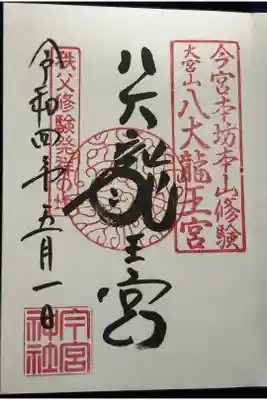 今宮本坊本山修験
大宮山
八大龍王宮
八大龍王宮
秩父修験発祥の地
令和四年五月一日
今宮
神社